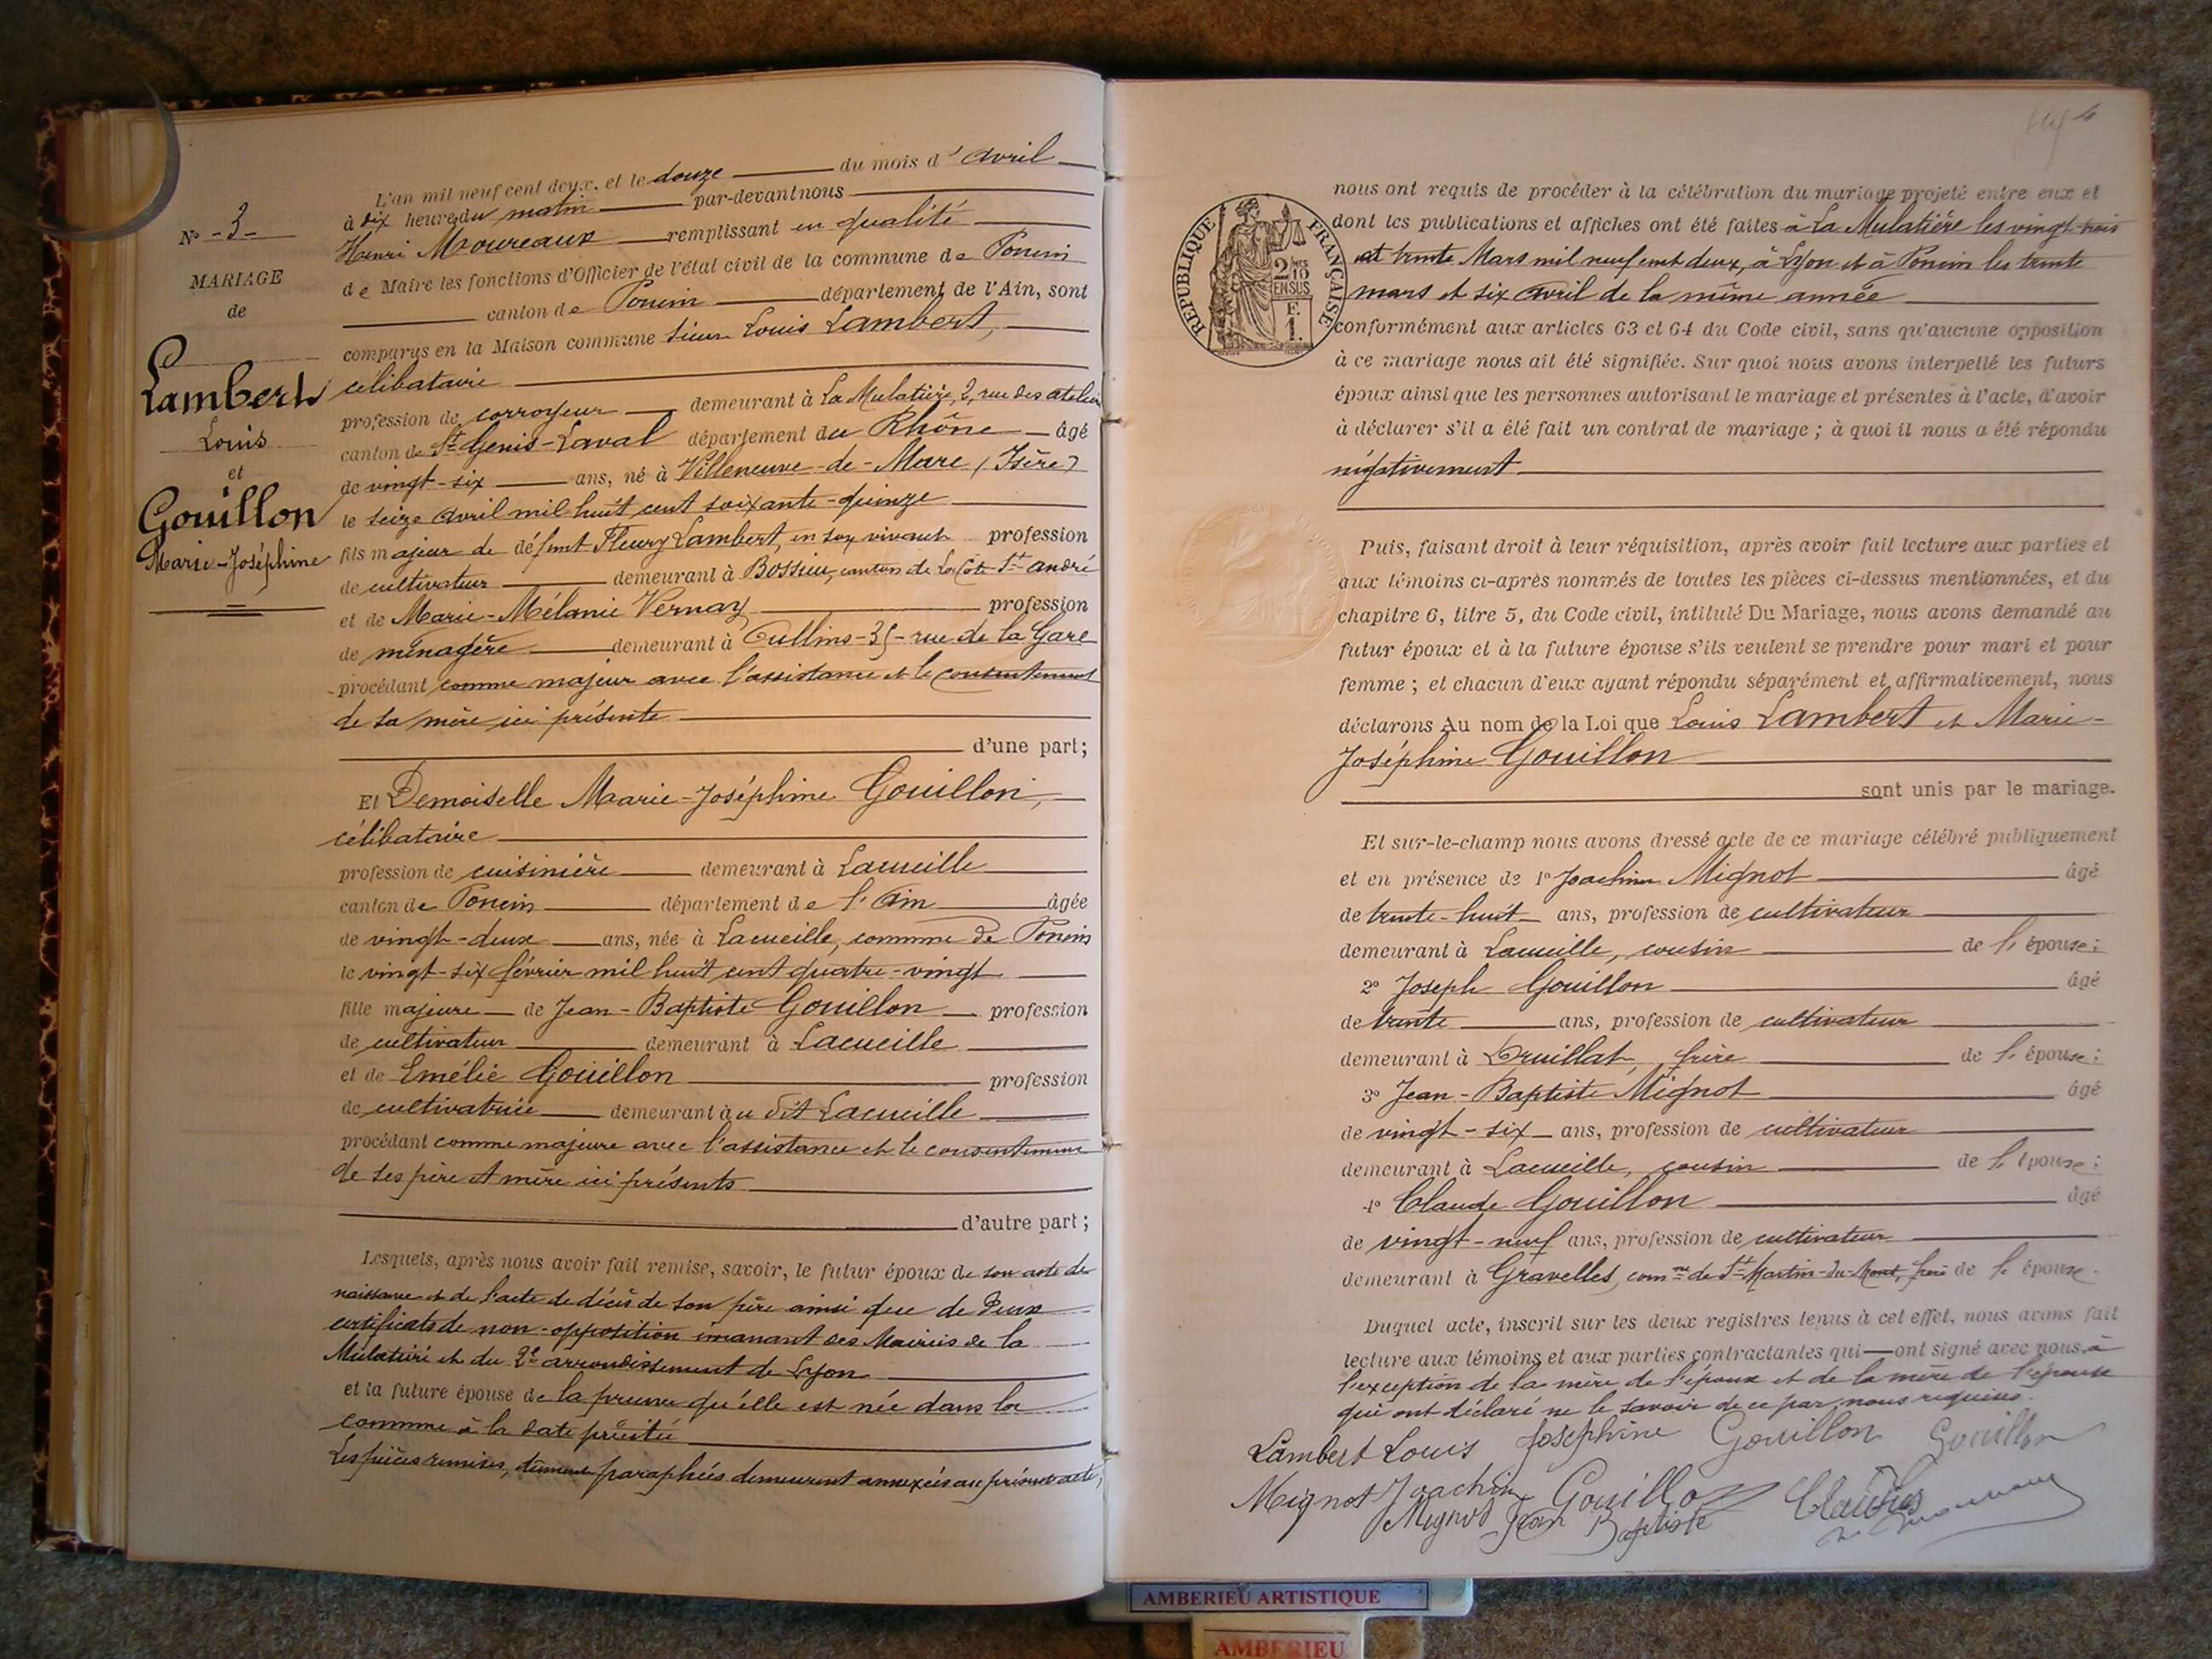 N° -3-
MARIAGE
de
Lambert
Louis
et
Gouillon
Marie-Joséphine
L'an mil neuf cent deux, et le douze du mois d'avril
à dix heures du matin par-devant nous
Henri Moureaux remplissant en qualité
de Maire les fonctions d'Officier de l'état civil de la commune de Poncin
canton de Poncin département de l'Ain, sont
comparus en la Maison commune sieur Louis Lambert,
célibataire
profession de corroyeur demeurant à La Mulatière, 2, rue des atelier
canton de St Genis-Laval département du Rhône âgé
de vingt-six ans, né à Villeneuve-de-Marc (Isère)
le seize avril mil huit cent soixante-quinze
fils majeur de défunt Fleury Lambert, en son vivant profession
de cultivateur demeurant à Bossieu, canton de La Côte St André
et de Marie-Mélanie Vernay profession
de ménagère demeurant à Oullins-35-rue de la Gare
procédant comme majeur avec l'assistance et le consentement
de sa mère ici présente
d'une part;
Et Demoiselle Marie-Joséphine Gouillon,
célibataire
profession de cuisinière demeurant à Lacueille
canton de Poncin département de l'Ain âgée
de vingt-deux ans, née à Lacueille, commune de Poncin
le vingt-six février mil huit cent quatre-vingt
fille majeure de Jean-Baptiste Gouillon profession
de cultivateur demeurant à Lacueille
et de Emélie Gouillon profession
de cultivatrice demeurant au dit Lacueille
procédant comme majeure avec l'assistance et le consentement
de ses père et mère ici présents
d'autre part;
Lesquels, après nous avoir fait remise, savoir, le futur époux de son acte de
naissance et de l'acte de décès de son père ainsi que de deux
certificats de non-opposition émanant des Mairies de la
Mulatière et du 2e arrondissement de Lyon
et la future épouse de la preuve qu'elle est née dans la
commune à la date précitée
Les pièces remises, dûment paraphées demeurent annexées au présent acte,
REPUBLIQUE FRANÇAISE
2/10mes
EN SUS
1 F.
nous ont requis de procéder à la célébration du mariage projeté entre eux et
dont les publications et affiches ont été faites à La Mulatière les vingt-trois
et trente Mars mil neuf cent deux, à Lyon et à Poncin les trente
mars et six avril de la même année
conformément aux articles 63 et 64 du Code civil, sans qu'aucune opposition
à ce mariage nous ait été signifiée. Sur quoi nous avons interpellé les futurs
époux ainsi que les personnes autorisant le mariage et présentes à l'acte, d'avoir
à déclarer s'il a été fait un contrat de mariage; à quoi il nous a été répondu
négativement
Puis, faisant droit à leur réquisition, après avoir fait lecture aux parties et
aux témoins ci-après nommés de toutes les pièces ci-dessus mentionnées, et du
chapitre 6, titre 5, du Code civil, intitulé Du Mariage, nous avons demandé au
futur époux et à la future épouse s'ils veulent se prendre pour mari et pour
femme; et chacun d'eux ayant répondu séparément et affirmativement, nous
déclarons Au nom de la Loi que Louis Lambert et Marie-
Joséphine Gouillon
sont unis par le mariage.
Et sur-le-champ nous avons dressé acte de ce mariage célébré publiquement
et en présence de 1° Joachim Mignot âgé
de trente-huit ans, profession de cultivateur
demeurant à Lacueille, cousin de l'épouse;
2° Joseph Gouillon âgé
de trente ans, profession de cultivateur
demeurant à Druillat, frère de l'épouse;
3° Jean-Baptiste Mignot âgé
de vingt-six ans, profession de cultivateur
demeurant à Lacueille, cousin de l'épouse;
4° Claude Gouillon âgé
de vingt-neuf ans, profession de cultivateur
demeurant à Gravelles, comne de St Martin-du-Mont, frère de l'épouse.
Duquel acte, inscrit sur les deux registres tenus à cet effet, nous avons fait
lecture aux témoins et aux parties contractantes qui ont signé avec nous, à
l'exception de la mère de l'époux et de la mère de l'épouse
qui ont déclaré ne le savoir de ce par nous requises.
Lambert Louis Joséphine Gouillon Gouillon
Mignot Joachim Gouillon Claudius
Mignot Jean Baptiste
AMBERIEU ARTISTIQUE
AMBERIEU